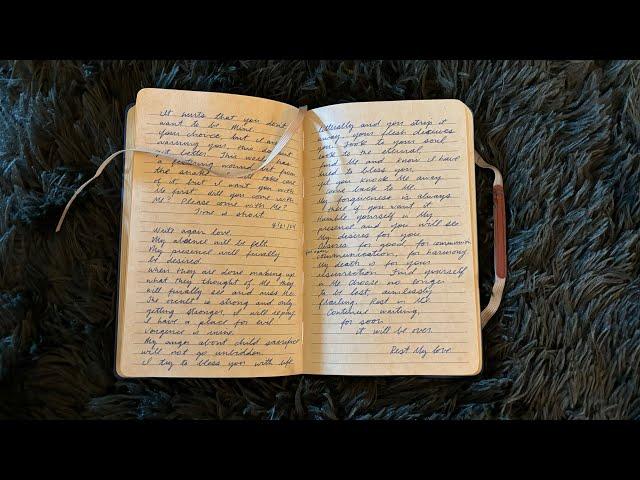 It hurts that you don't
want to be Mine
your choice, but I am
warning you, this doesn't
get better. This week was
a festering wound, but from
the straight I will take care
of it, but I want you with
Me first. Will you come with
Me? Please come with Me?
Time is short.
8/21/24
Write again love,
My absence will be felt
My presence will finally
be desired.
When they are done making up
what they thought of Me they
will finally see and miss Me
The occult is strong and only
getting stronger, I will repay
I have a place for evil
Vengence is mine.
My anger about child sacrifice
will not go unbidden.
I try to bless you with life
literally and you strip it
away. your flesh deceives
you! look to your soul
look to the eternal
find Me and know I have
tried to bless you,
yet you knock Me away
Come back to Me.
My forgiveness is always
there if you want it
Humble yourself in My
presence and you will see
My desires for you
desires for good, for communion
for open communication, for harmony.
My death is for your
resurrection. Find yourself
in Me choose no longer
to be lost, aimlessly
floating. Rest in Me
Continue waiting,
for soon
it will be over.
Rest My love